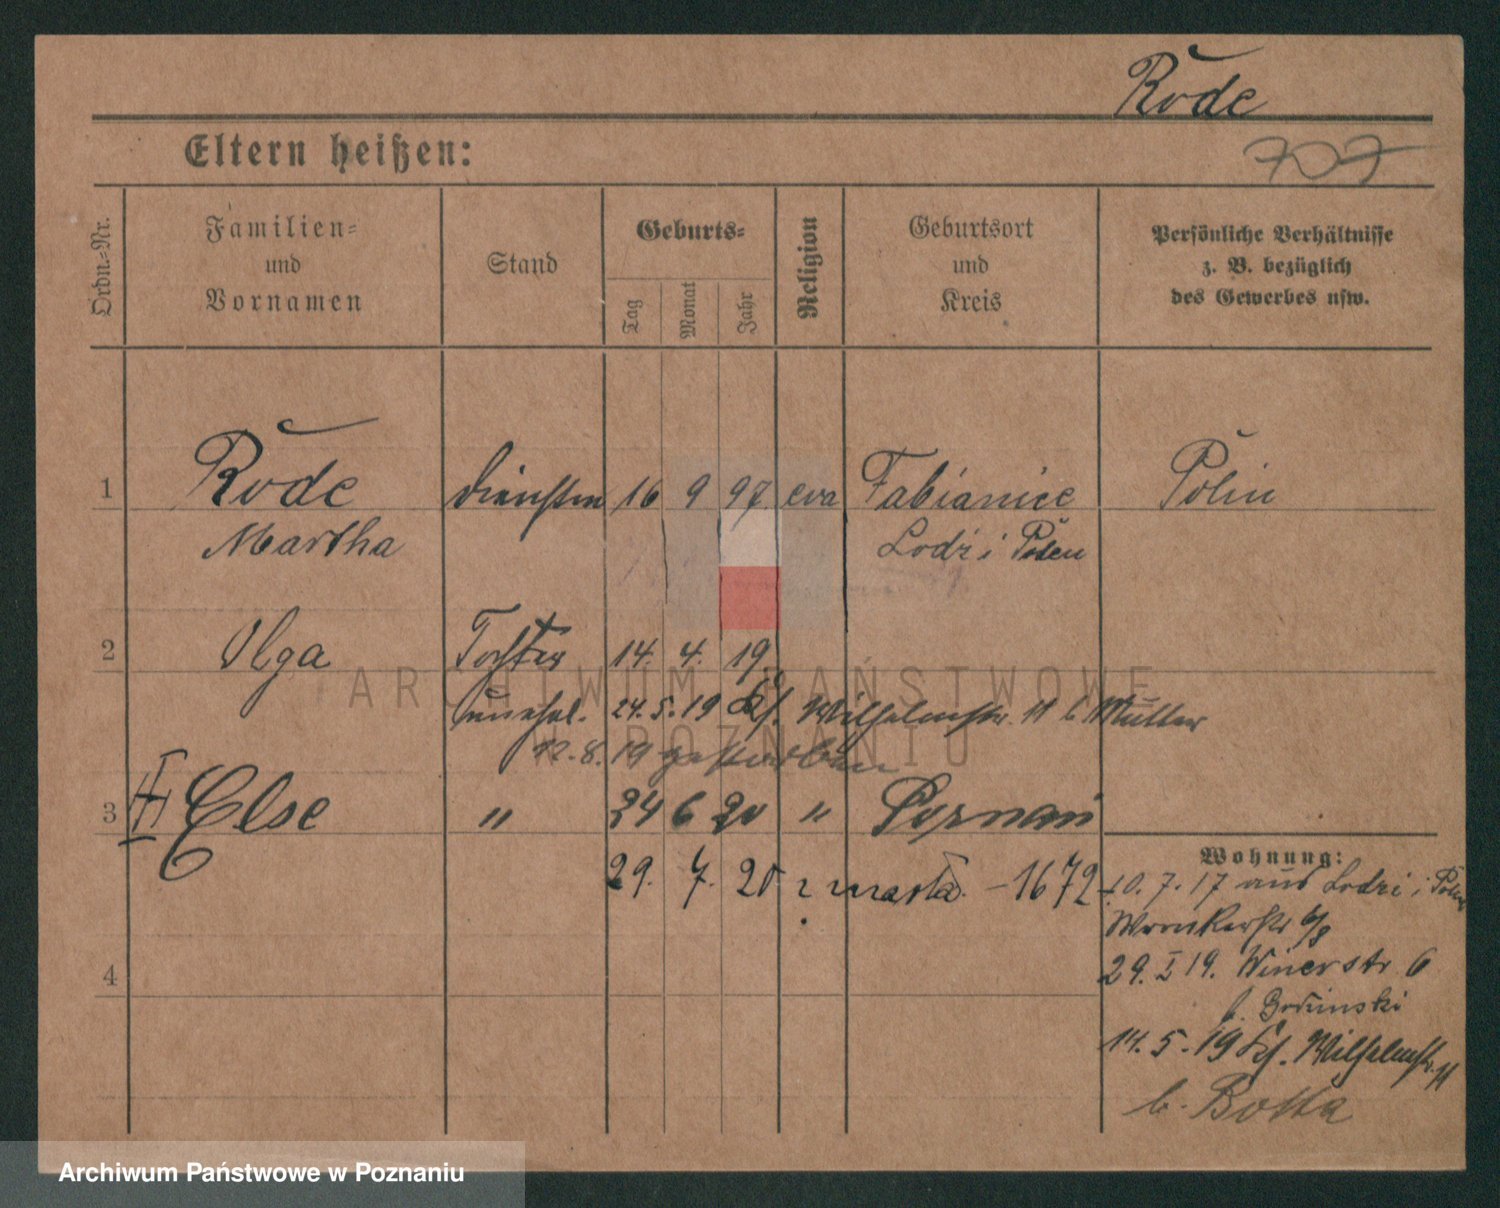 Rode
Eltern heißen:
707
Ordn.-Nr.
Familien-
und
Vornamen
Stand
Geburts-
Tag
Monat
Jahr
Religion
Geburtsort
und
Kreis
Persönliche Verhältnisse
z. B. bezüglich
des Gewerbes usw.
1 Rode 16 9 97 eva Fabianice
Martha Lodz i Polen
2 Olga Tochter 14. 4. 19
unehel. 24.5.19 Wilhelmstr. 11 b Mutter
12.8.19 gestorben
3 II Else " 24 6 20 " Poznań
29. 7. 20 z miasta - 1672
Wohnung:
10.7.17 aus Lodz i Polen
Wronkerstr 6/8
29. I 19. Winerstr 6
14.5.19 Wilhelmstr. 11
b. Botta
4
ARCHIWUM PAŃSTWOWE
W POZNANIU
Archiwum Państwowe w Poznaniu